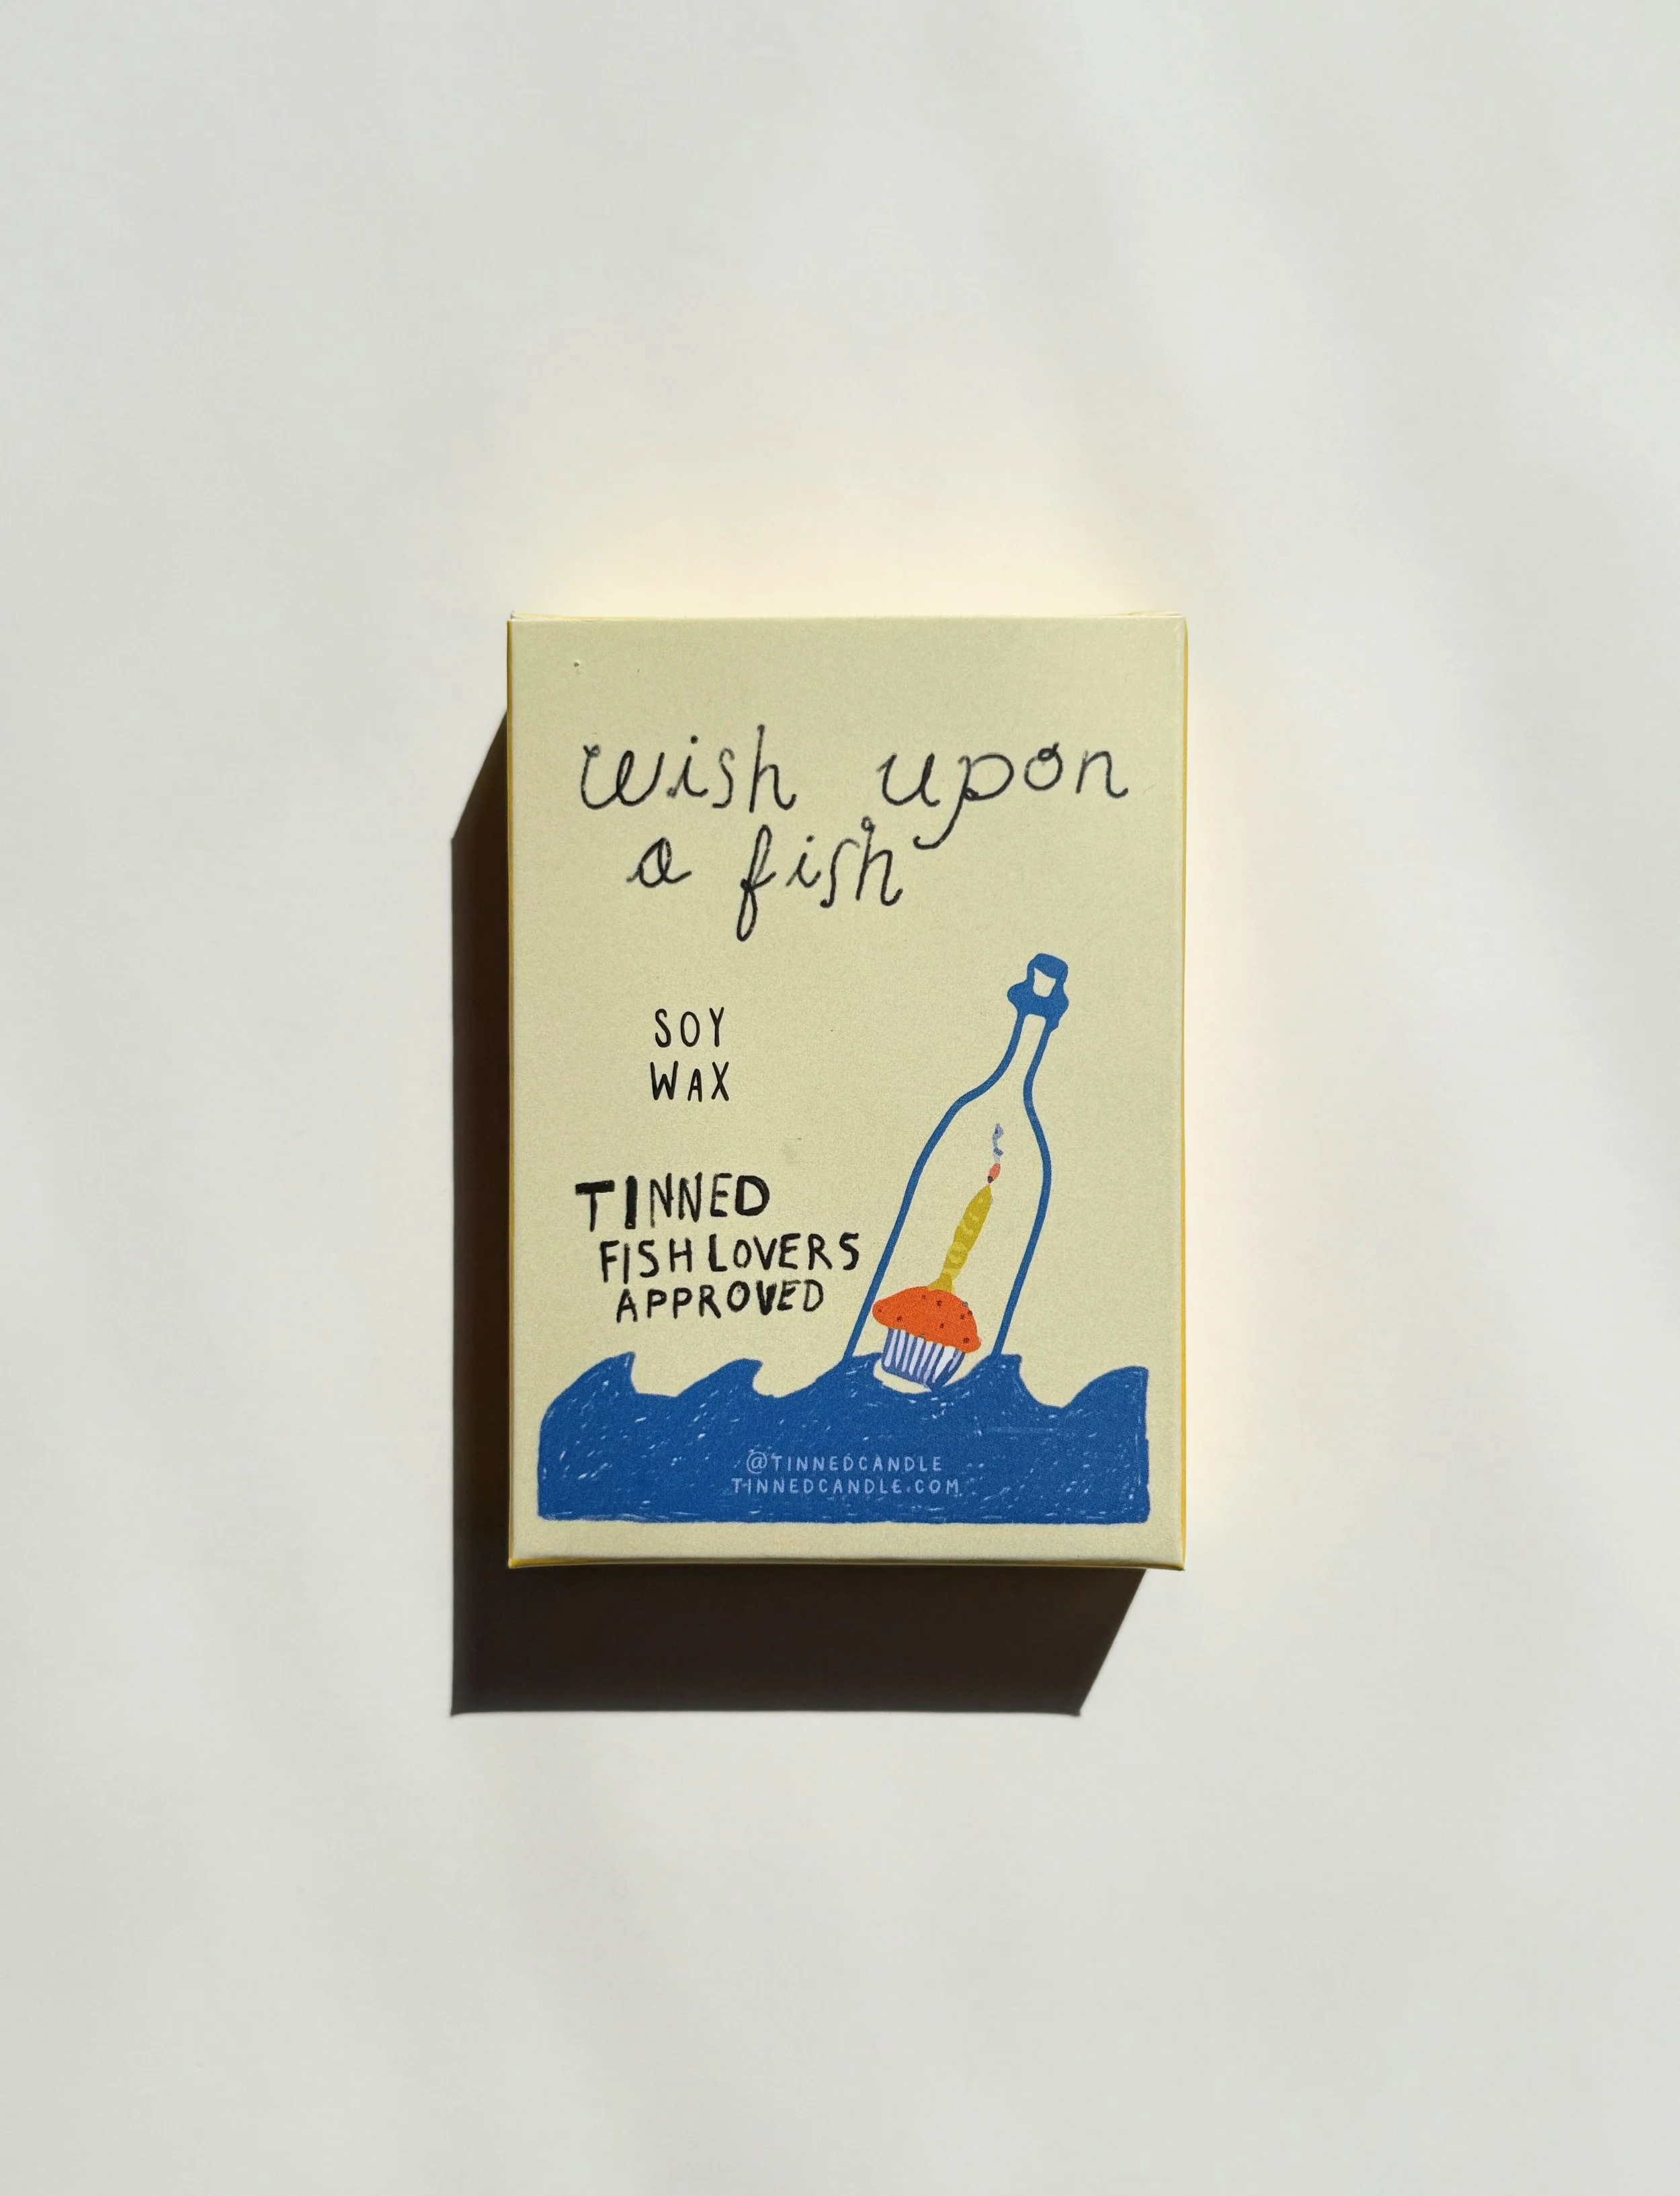 wish upon
a fish
SOY
WAX
TINNED
FISH LOVERS
APPROVED
@TINNEDCANDLE
TINNEDCANDLE.COM